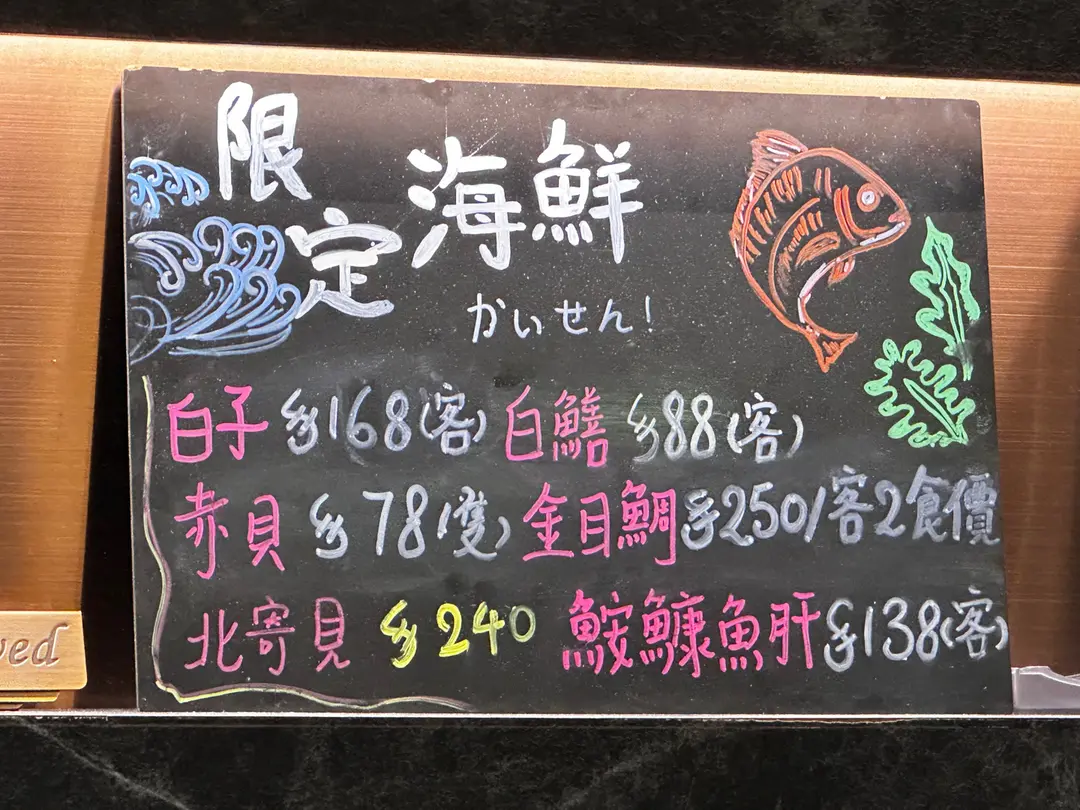 限定海鮮
かいせん!
白子 $168(客) 白鱔 $88(客)
赤貝 $78(隻) 金目鯛 $250/客2食價
北寄貝 $240 鮟鱇魚肝 $138(客)
ved